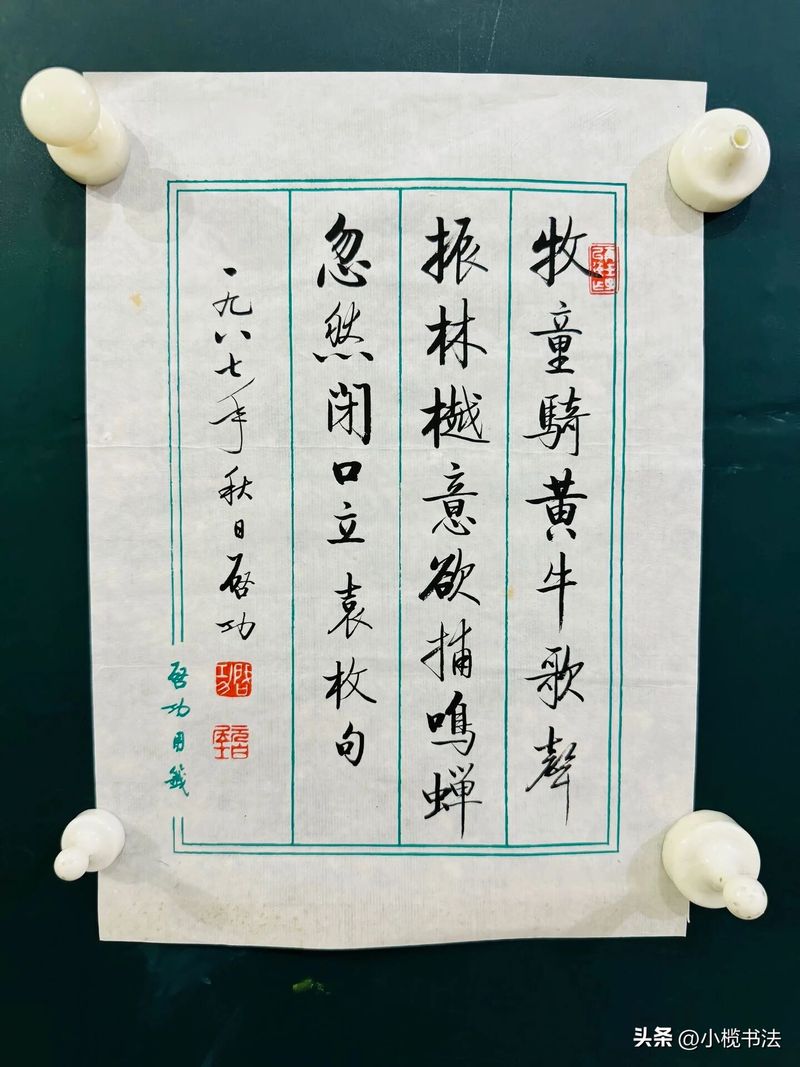 牧童騎黄牛歌聲
振林樾意欲捕鳴蝉
忽然闭口立袁枚句
一九八七年秋日启功
启功用箋
头条@小榄书法